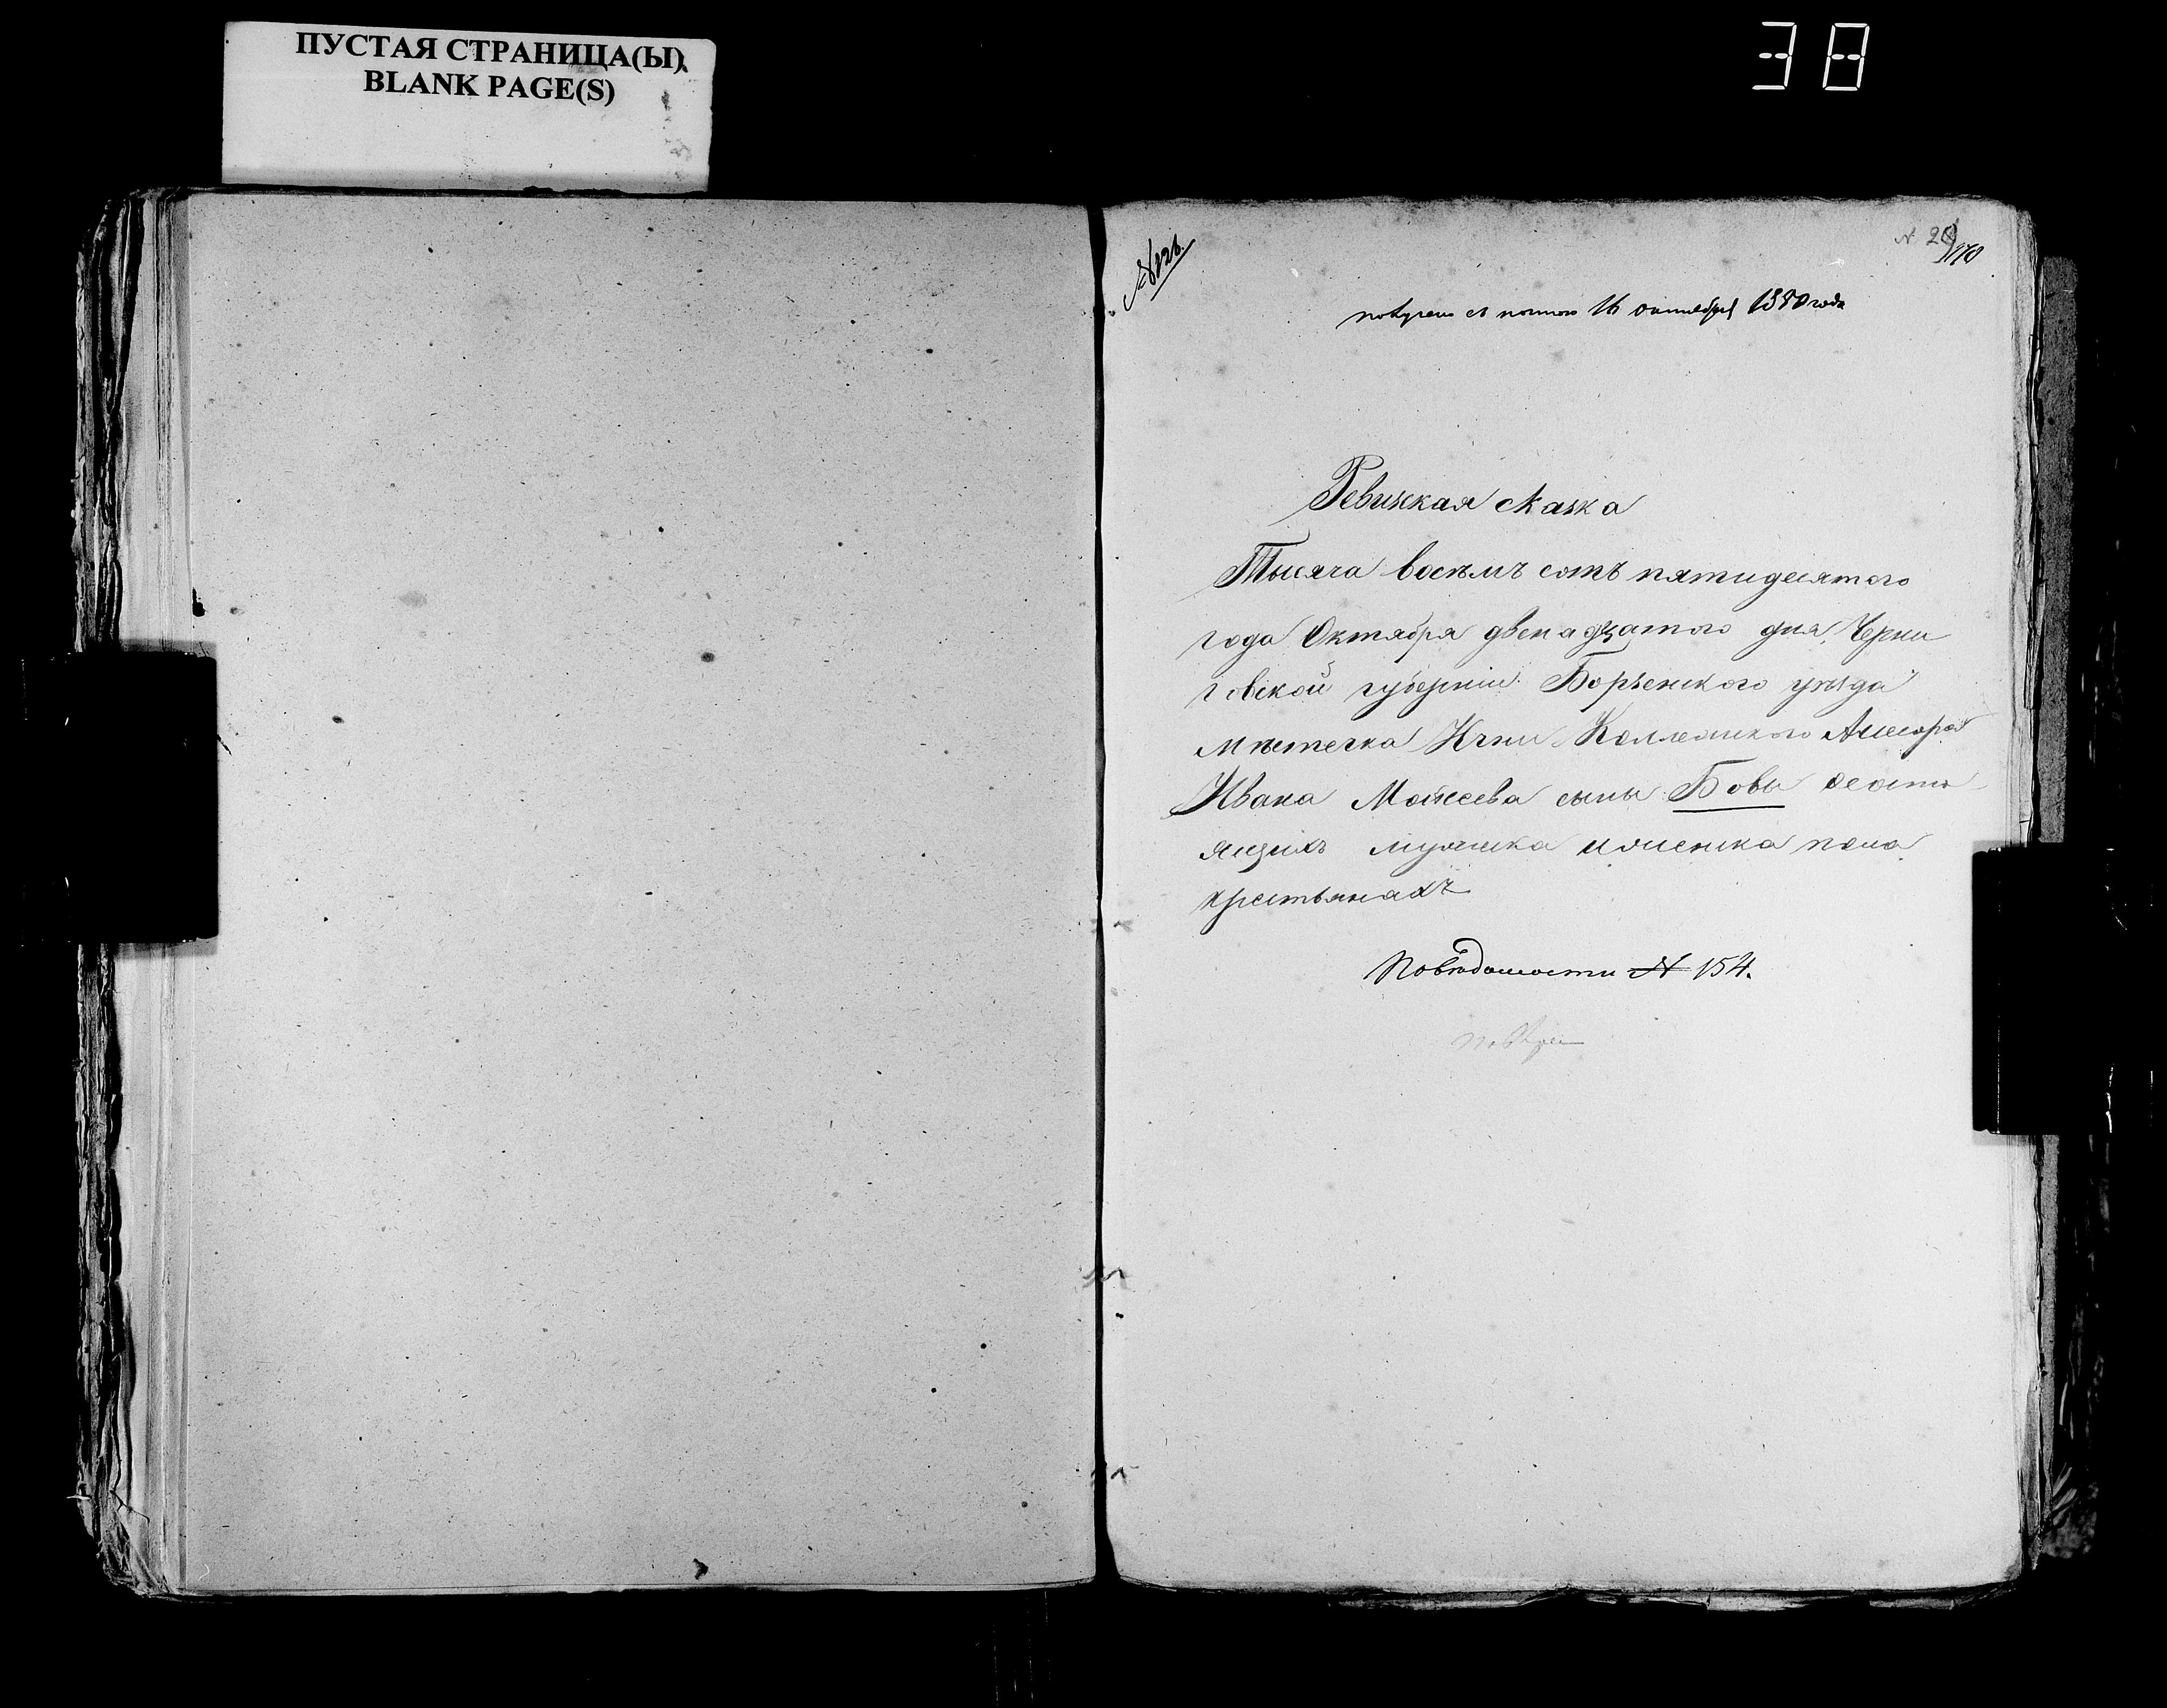 ПУСТАЯ СТРАНИЦА(Ы)
BLANK PAGE(S)
38
№ 126.
№ 29
270
получено съ почтою 16 октября 1850 года
Ревизская сказка
Тысяча восемъ сотъ пятидесятого
года Октября двенадцатого дня, Черни
говской губерніи Борзенского уезда
мѣстечка Ични Коллежского Асесора
Ивана Моисеева сына Бовы о состо
ящихъ мужеска и женска пола
крестьянахъ
По вѣдомости № 154.